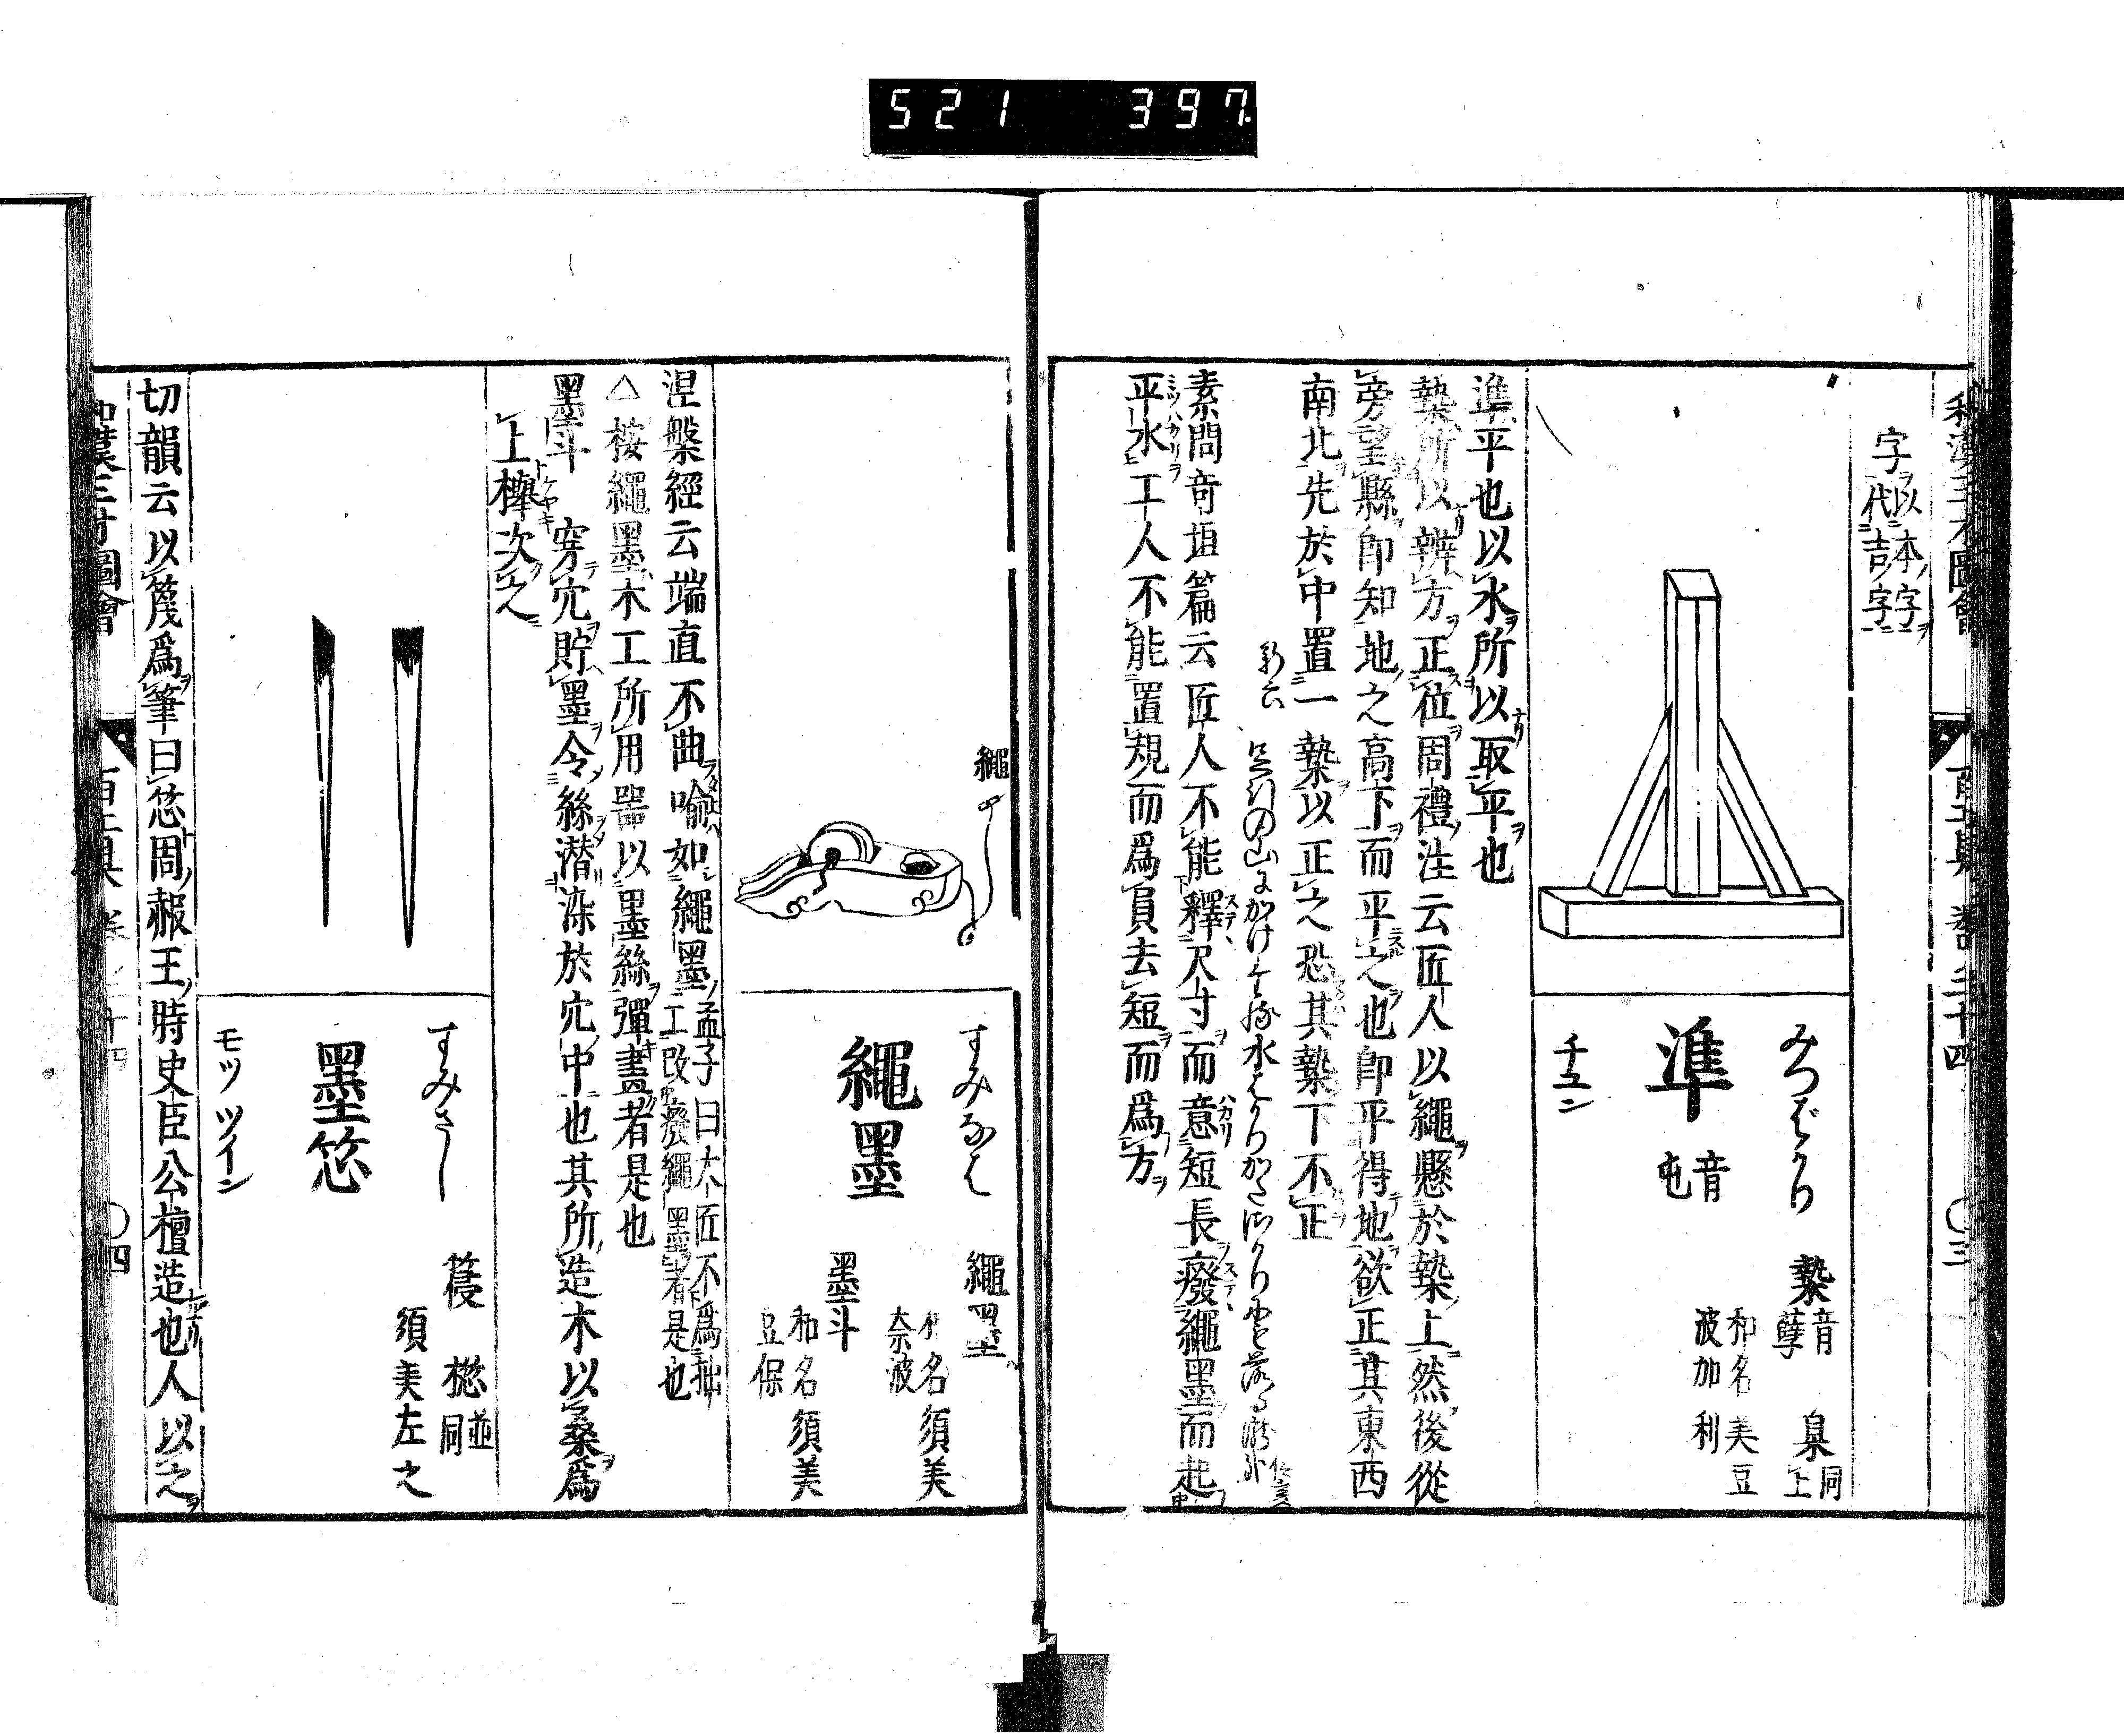 521 397
和漢三才圖會 百工具 卷之二十四 〇三
字 以本字
代吉字
みづばかり
準 音屯
チユン
槷 音孽 臬 同上
和名 美豆
波加利
準平也以水所以取平也
槷所以辨方正位周禮注云匠人以繩懸於槷上然後從
旁望縣即知地之高下而平之也即平得地欲正其東西
南北先於中置一槷以正之恐其槷下不正
素問奇恒篇云匠人不能釋尺寸而意短長癈繩墨而起
平水工人不能置規而爲員去短而爲方
繩
すみなは
繩墨
繩墨
和名 須美
奈波
墨斗
和名 須美
豆保
涅槃經云端直不曲喩如繩墨 孟子曰大匠不爲拙
工改癈繩墨者是也
△桉繩墨木工所用噐以墨絲彈畫者是也
墨斗 穿穴貯墨令絲潜染於穴中也其所造木以桑爲
上櫸次之
すみさし
墨𥬲
モツ ツイン
並同
須美左之
切韻云以篾爲筆曰𥬲周赧王時史臣公檀造也人以之
和漢三才圖會 百工具 卷之二十四 〇四